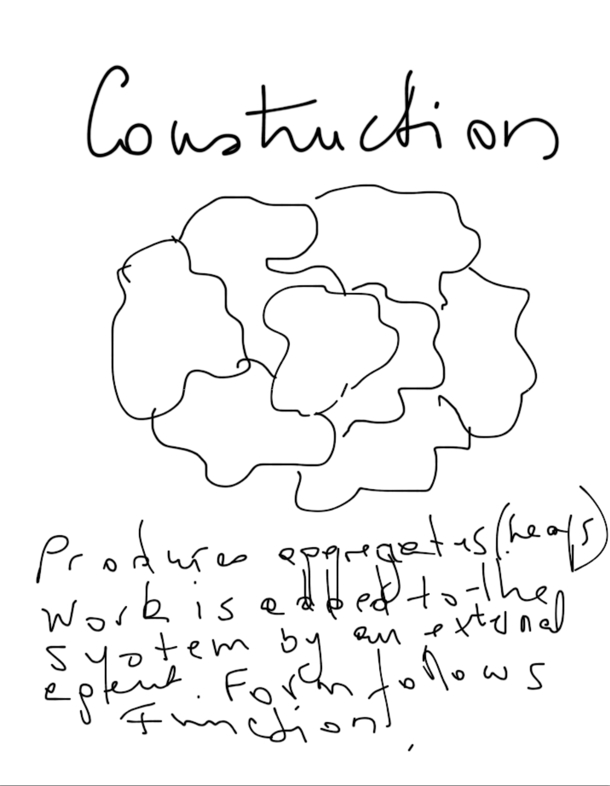 Construction
Produces aggregates (heaps)
Work is added to the
system by an external
agent. Form follows
Function.